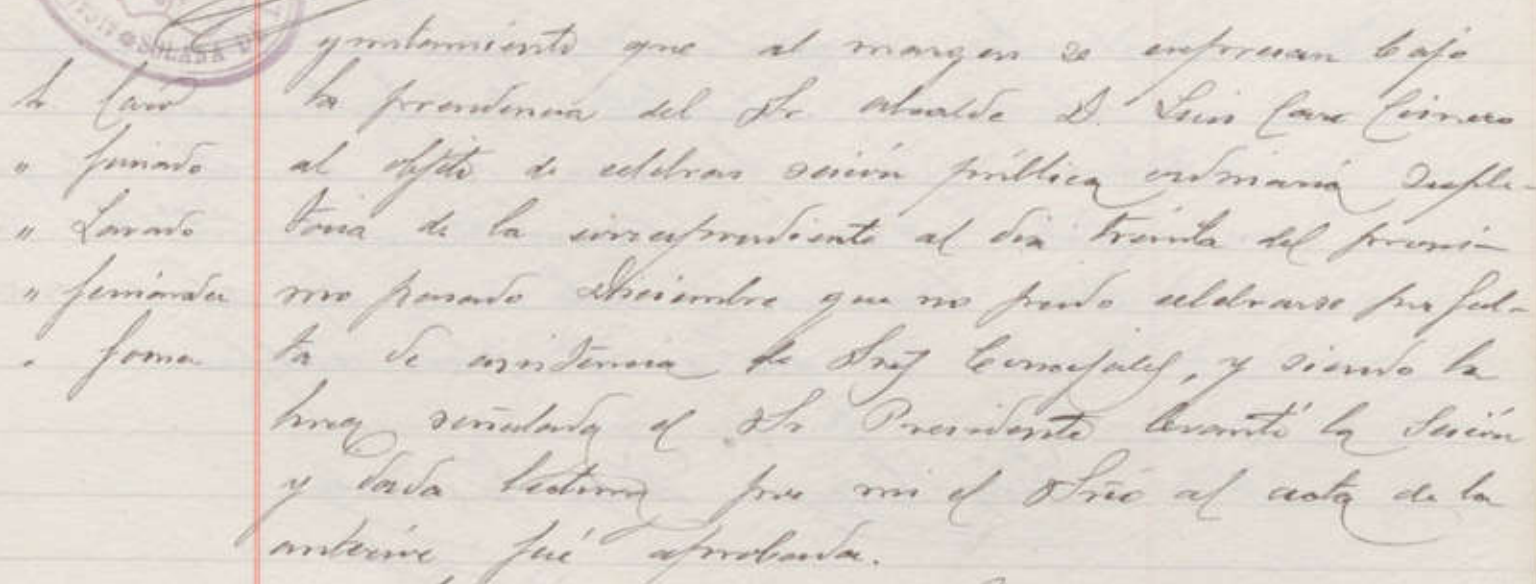 yuntamiento que al margen se expresan bajo
Sr Caro la presidencia del Sr alcalde D. Luis Caro
" al objeto de celebrar sesión pública ordinaria suple-
" Lavado toria de la correspondiente al dia treinta del proxi-
" Fernández mo pasado Diciembre que no pudo celebrarse por fal-
" ta de asistencia de Sres Concejales, y siendo la
hora señalada el Sr Presidente levantó la Sesión
y dada lectura por mi el Srio al acta de la
anterior fué aprobada.